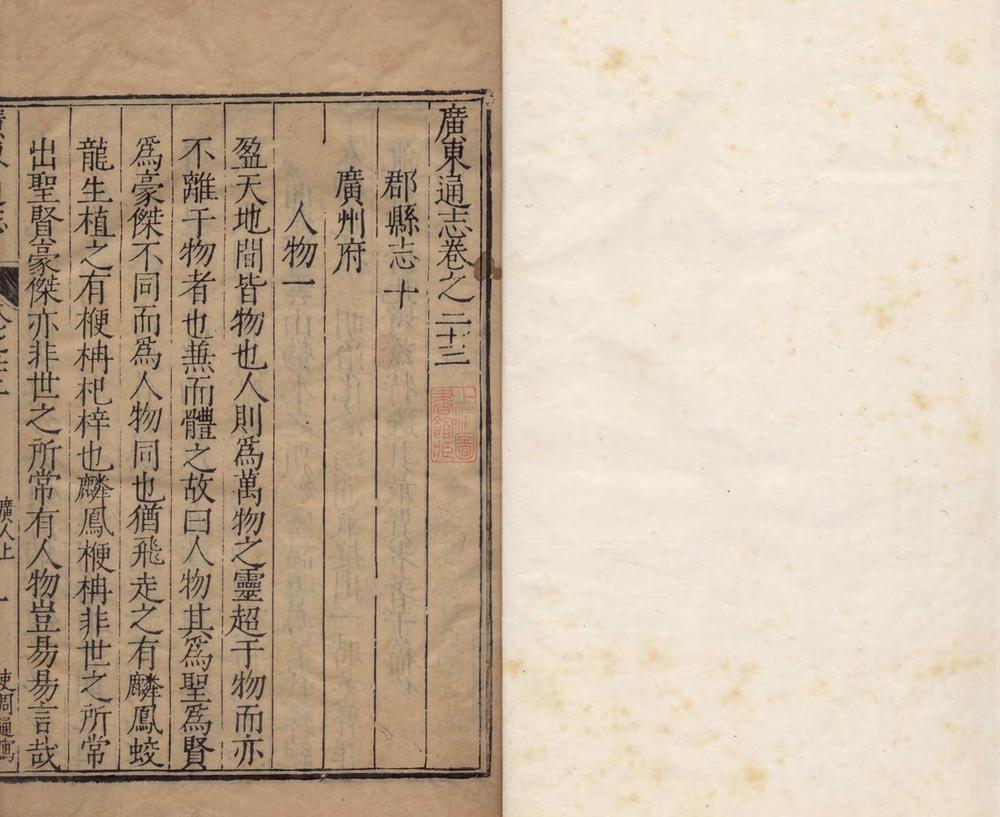 廣東通志卷之二十三
郡縣志十
廣州府
人物一
盈天地間皆物也人則爲萬物之靈超于物而亦
不離于物者也蕪而體之故曰人物其爲聖爲賢
爲豪傑不同而爲人物同也猶飛走之有麟鳳蛟
龍生植之有楩柟杞梓也麟鳳楩柟非世之所常
出聖賢豪傑亦非世之所常有人物豈易易言哉
廣人上
一